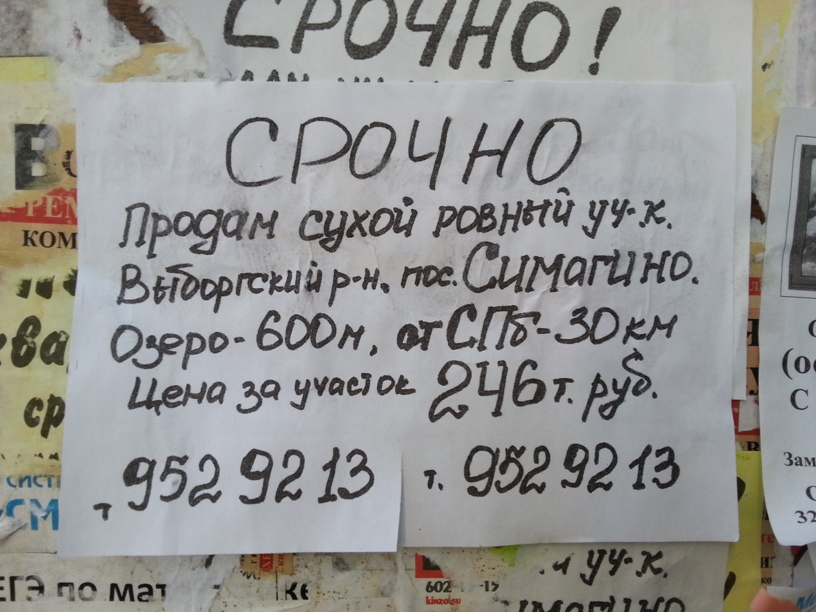 СРОЧНО!
СРОЧНО
Продам сухой ровный уч-к.
Выборгский р-н. пос. Симагино.
Озеро-600м, от СПб-30км
Цена за участок 246 т. руб.
т 952 92 13
т. 952 92 13
КОМ
ква
ср
СИСТ
СМ
ЕГЭ по мат
602
kinzo.su
уч-к.
Зам
32